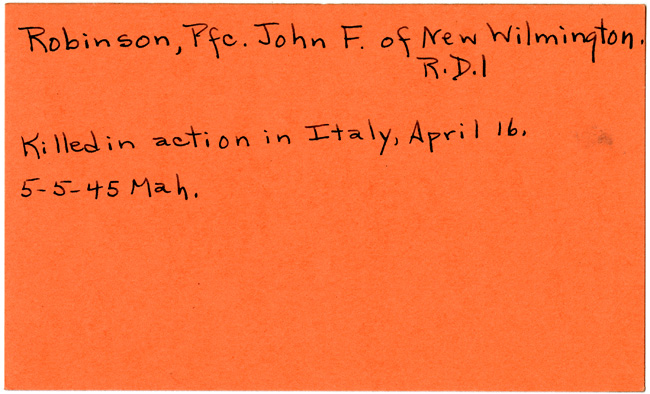 Robinson, Pfc. John F. of New Wilmington.
R.D.1
Killed in action in Italy, April 16.
5-5-45 Mah.